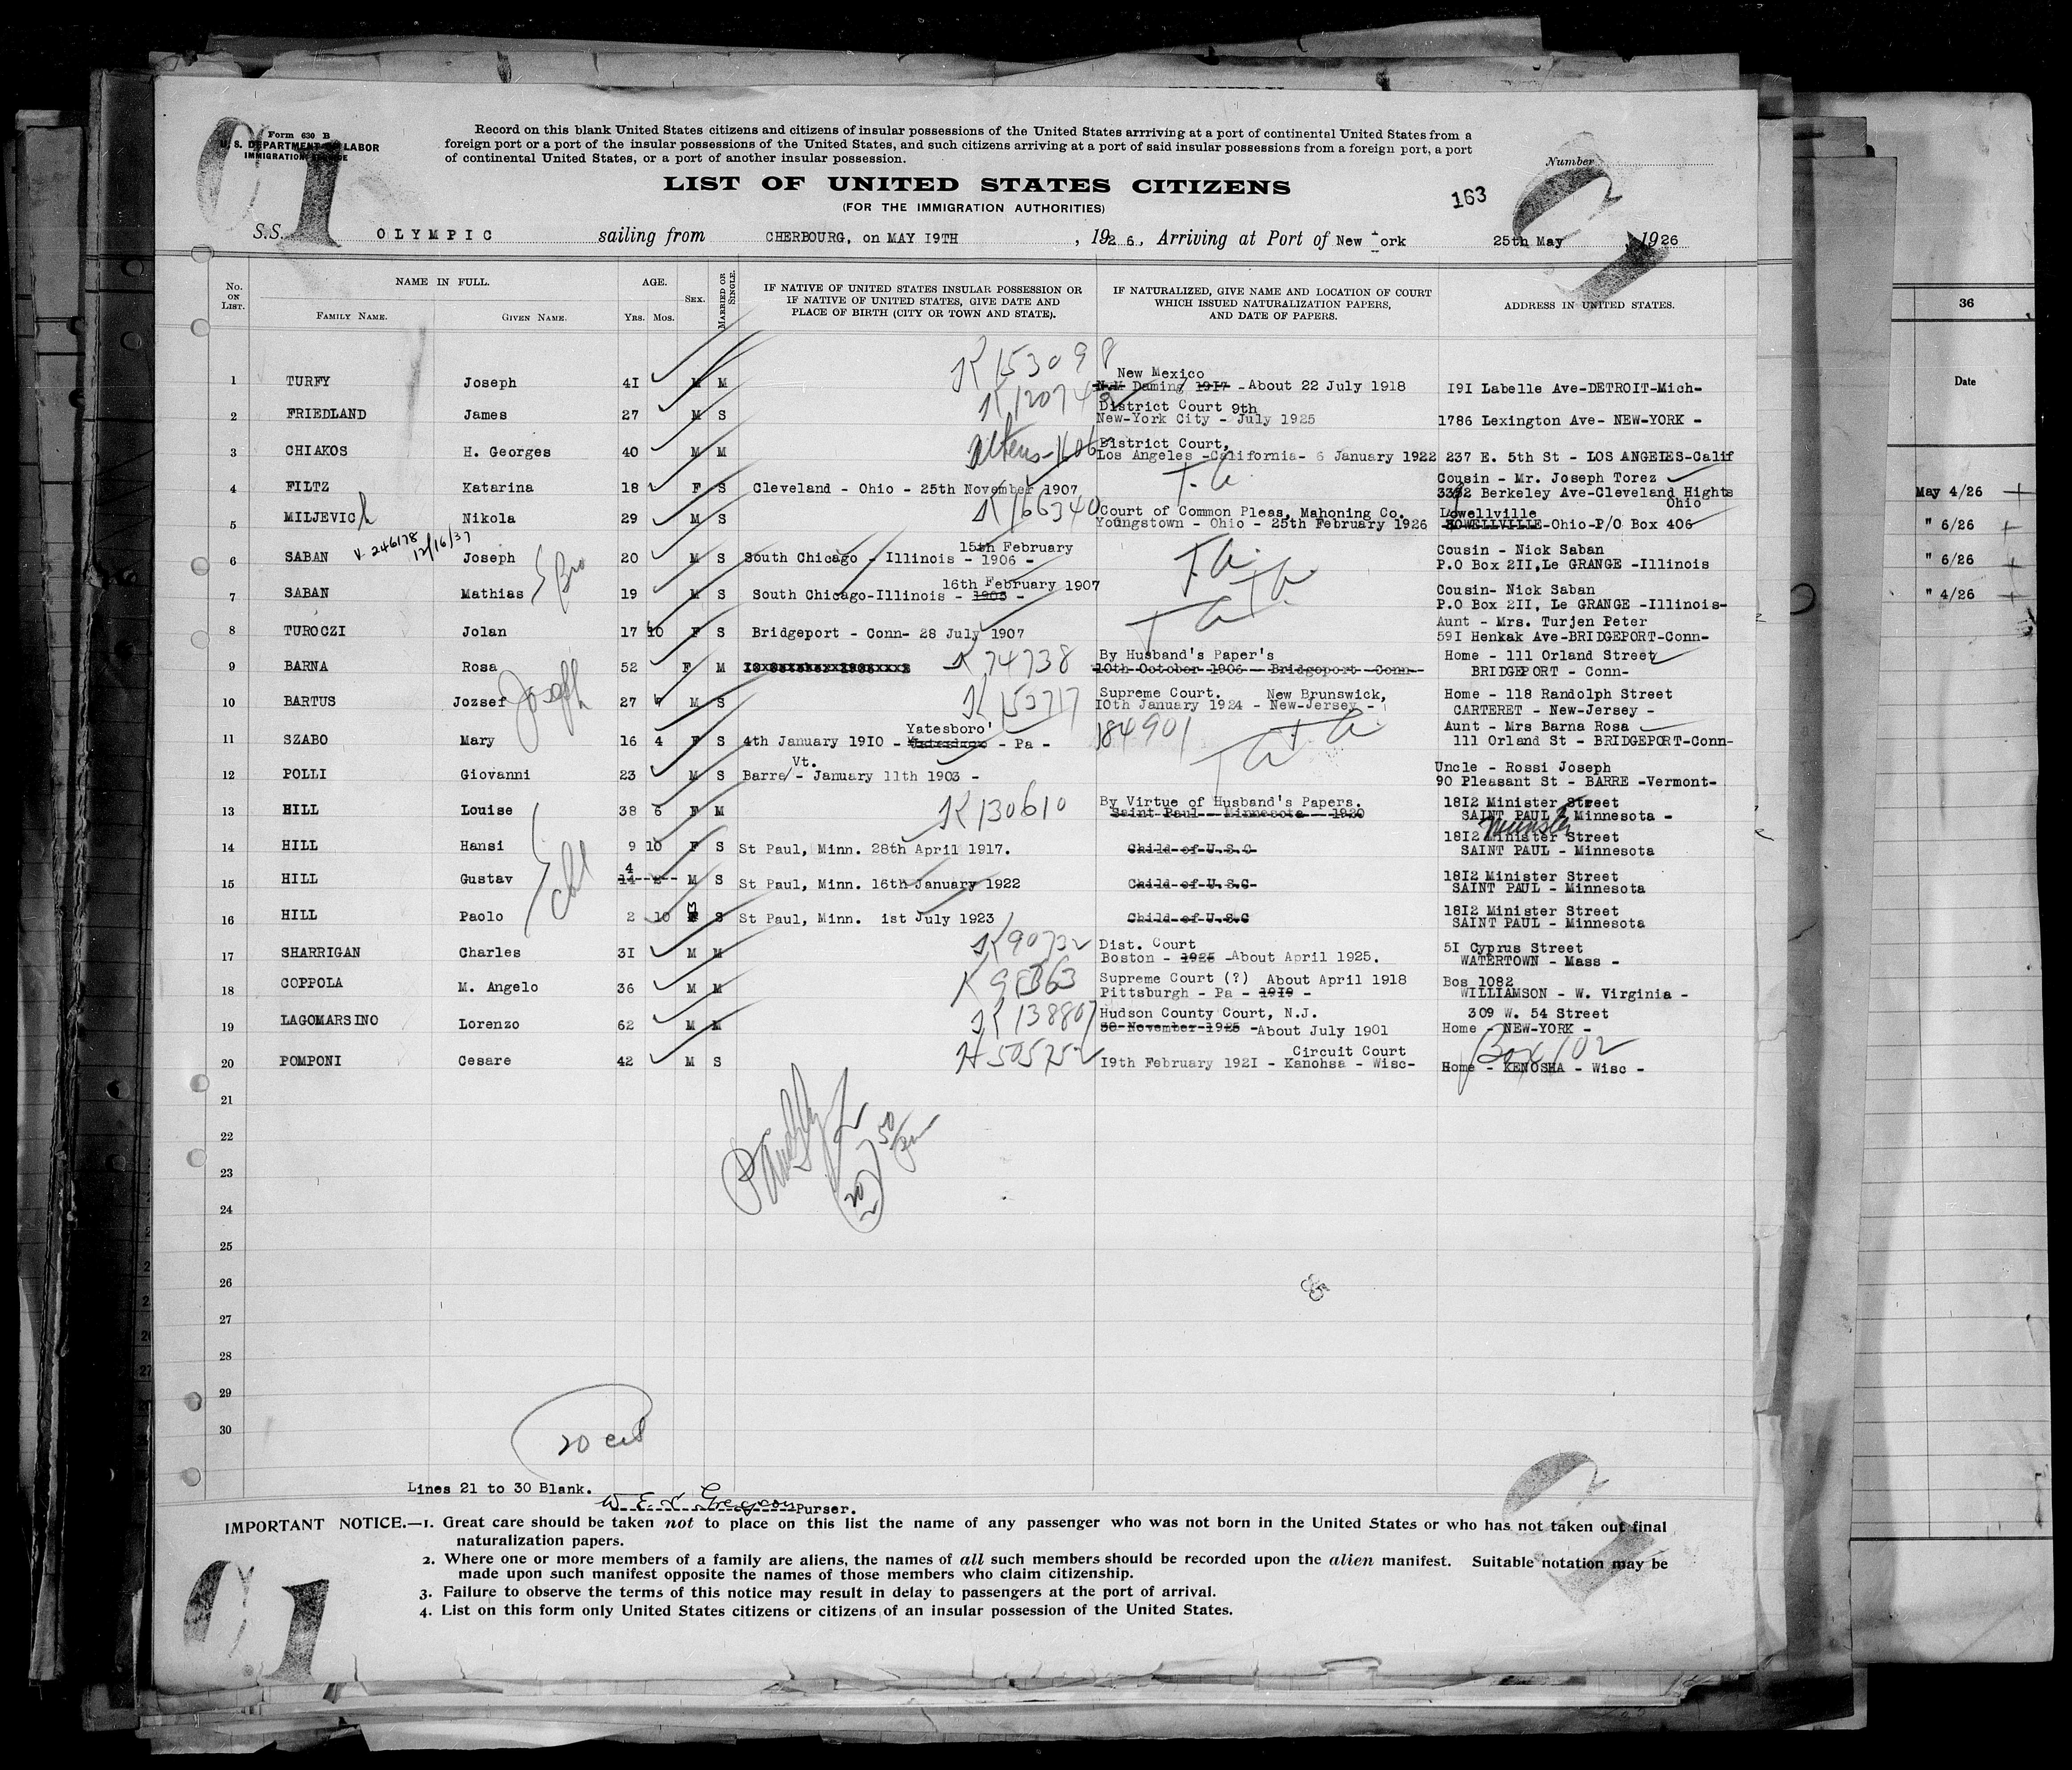 Form 630 B
U. S. DEPARTMENT OF LABOR
IMMIGRATION SERVICE
Record on this blank United States citizens and citizens of insular possessions of the United States arrriving at a port of continental United States from a
foreign port or a port of the insular possessions of the United States, and such citizens arriving at a port of said insular possessions from a foreign port, a port
of continental United States, or a port of another insular possession.
Number
LIST OF UNITED STATES CITIZENS
(FOR THE IMMIGRATION AUTHORITIES)
163
S.S. OLYMPIC sailing from CHERBOURG, on MAY I9TH , 192 6., Arriving at Port of New York 25th May 1926
No. ON LIST.
NAME IN FULL.
FAMILY NAME.
GIVEN NAME.
AGE.
Yrs. Mos.
SEX.
MARRIED OR SINGLE.
IF NATIVE OF UNITED STATES INSULAR POSSESSION OR
IF NATIVE OF UNITED STATES, GIVE DATE AND
PLACE OF BIRTH (CITY OR TOWN AND STATE).
IF NATURALIZED, GIVE NAME AND LOCATION OF COURT
WHICH ISSUED NATURALIZATION PAPERS,
AND DATE OF PAPERS.
ADDRESS IN UNITED STATES.
36
Date
K153098
New Mexico
1 TURFY Joseph 4I M M N.M Daming 1917 - About 22 July 1918 I9I Labelle Ave-DETROIT-Mich-
District Court 9th
2 FRIEDLAND James 27 M S New-York City - July 1925 1786 Lexington Ave- NEW-YORK -
District Court,
3 CHIAKOS H. Georges 40 M M Los Angeles -California- 6 January 1922 237 E. 5th St - LOS ANGELES-Calif
Cousin - Mr. Joseph Torez
4 FILTZ Katarina 18 F S Cleveland - Ohio - 25th November 1907 T.C. 3392 Berkeley Ave-Cleveland Hights Ohio May 4/26
K166340 Court of Common Pleas, Mahoning Co. Lowellville
5 MILJEVICh Nikola 29 M S Youngstown - Ohio - 25th February 1926 HOWELLVILLE-Ohio-P/O Box 406 " 6/26
V-246178 12/16/37
15th February Cousin - Nick Saban
6 SABAN Joseph 20 M S South Chicago - Illinois - 1906 - P.O Box 2II,Le GRANGE -Illinois " 6/26
Bro
16th February 1907 Cousin- Nick Saban
7 SABAN Mathias 19 M S South Chicago-Illinois - 1903 - P.O Box 2II, Le GRANGE -Illinois- " 4/26
Aunt - Mrs. Turjen Peter
8 TUROCZI Jolan 17 10 F S Bridgeport - Conn- 28 July 1907 59I Henkak Ave-BRIDGEPORT-Conn-
By Husband's Paper's Home - 111 Orland Street
9 BARNA Rosa 52 F M K74738 10th October 1906 - Bridgeport Conn- BRIDGEPORT - Conn-
Joseph
Supreme Court. New Brunswick, Home - 118 Randolph Street
10 BARTUS Jozsef 27 M S K153717 I0th January 1924 - New-Jersey - CARTERET - New-Jersey -
Yatesboro' Aunt - Mrs Barna Rosa
11 SZABO Mary 16 4 F S 4th January I9I0 - - Pa - 184901 111 Orland St - BRIDGEPORT-Conn-
Vt. Uncle - Rossi Joseph
12 POLLI Giovanni 23 M S Barre - January 11th 1903 - 90 Pleasant St - BARRE -Vermont-
By Virtue of Husband's Papers. 18I2 Minister Street
13 HILL Louise 38 6 F M K130610 Saint Paul - Minnesota - 1920 SAINT PAUL - Minnesota -
Munster
18I2 Minister Street
14 HILL Hansi 9 10 F S St Paul, Minn. 28th April 1917. Child of U.S.C SAINT PAUL - Minnesota
chl
4 18I2 Minister Street
15 HILL Gustav 14 M S St Paul, Minn. 16th January 1922 Child of U.S.C- SAINT PAUL - Minnesota
M 18I2 Minister Street
16 HILL Paolo 2 10 F S St Paul, Minn. 1st July 1923 Child of U.S.C SAINT PAUL - Minnesota
K90732 Dist. Court 5I Cyprus Street
17 SHARRIGAN Charles 3I M M Boston - 1925 -About April 1925. WATERTOWN - Mass -
Supreme Court (?) About April 1918 Bos 1082
18 COPPOLA M. Angelo 36 M M Pittsburgh - Pa - 1919 - WILLIAMSON - W. Virginia -
K138807 Hudson County Court, N.J. 309 W. 54 Street
19 LAGOMARSINO Lorenzo 62 M M 30 November 1925 -About July 1901 Home - NEW-YORK -
Circuit Court Box 102
20 POMPONI Cesare 42 M S I9th February 192I - Kanohsa - Wisc- Home - KENOSHA - Wisc -
21
22
23
24
25
26
27
28
29
30
Lines 21 to 30 Blank.
Purser.
IMPORTANT NOTICE.—1. Great care should be taken not to place on this list the name of any passenger who was not born in the United States or who has not taken out final
naturalization papers.
2. Where one or more members of a family are aliens, the names of all such members should be recorded upon the alien manifest. Suitable notation may be
made upon such manifest opposite the names of those members who claim citizenship.
3. Failure to observe the terms of this notice may result in delay to passengers at the port of arrival.
4. List on this form only United States citizens or citizens of an insular possession of the United States.